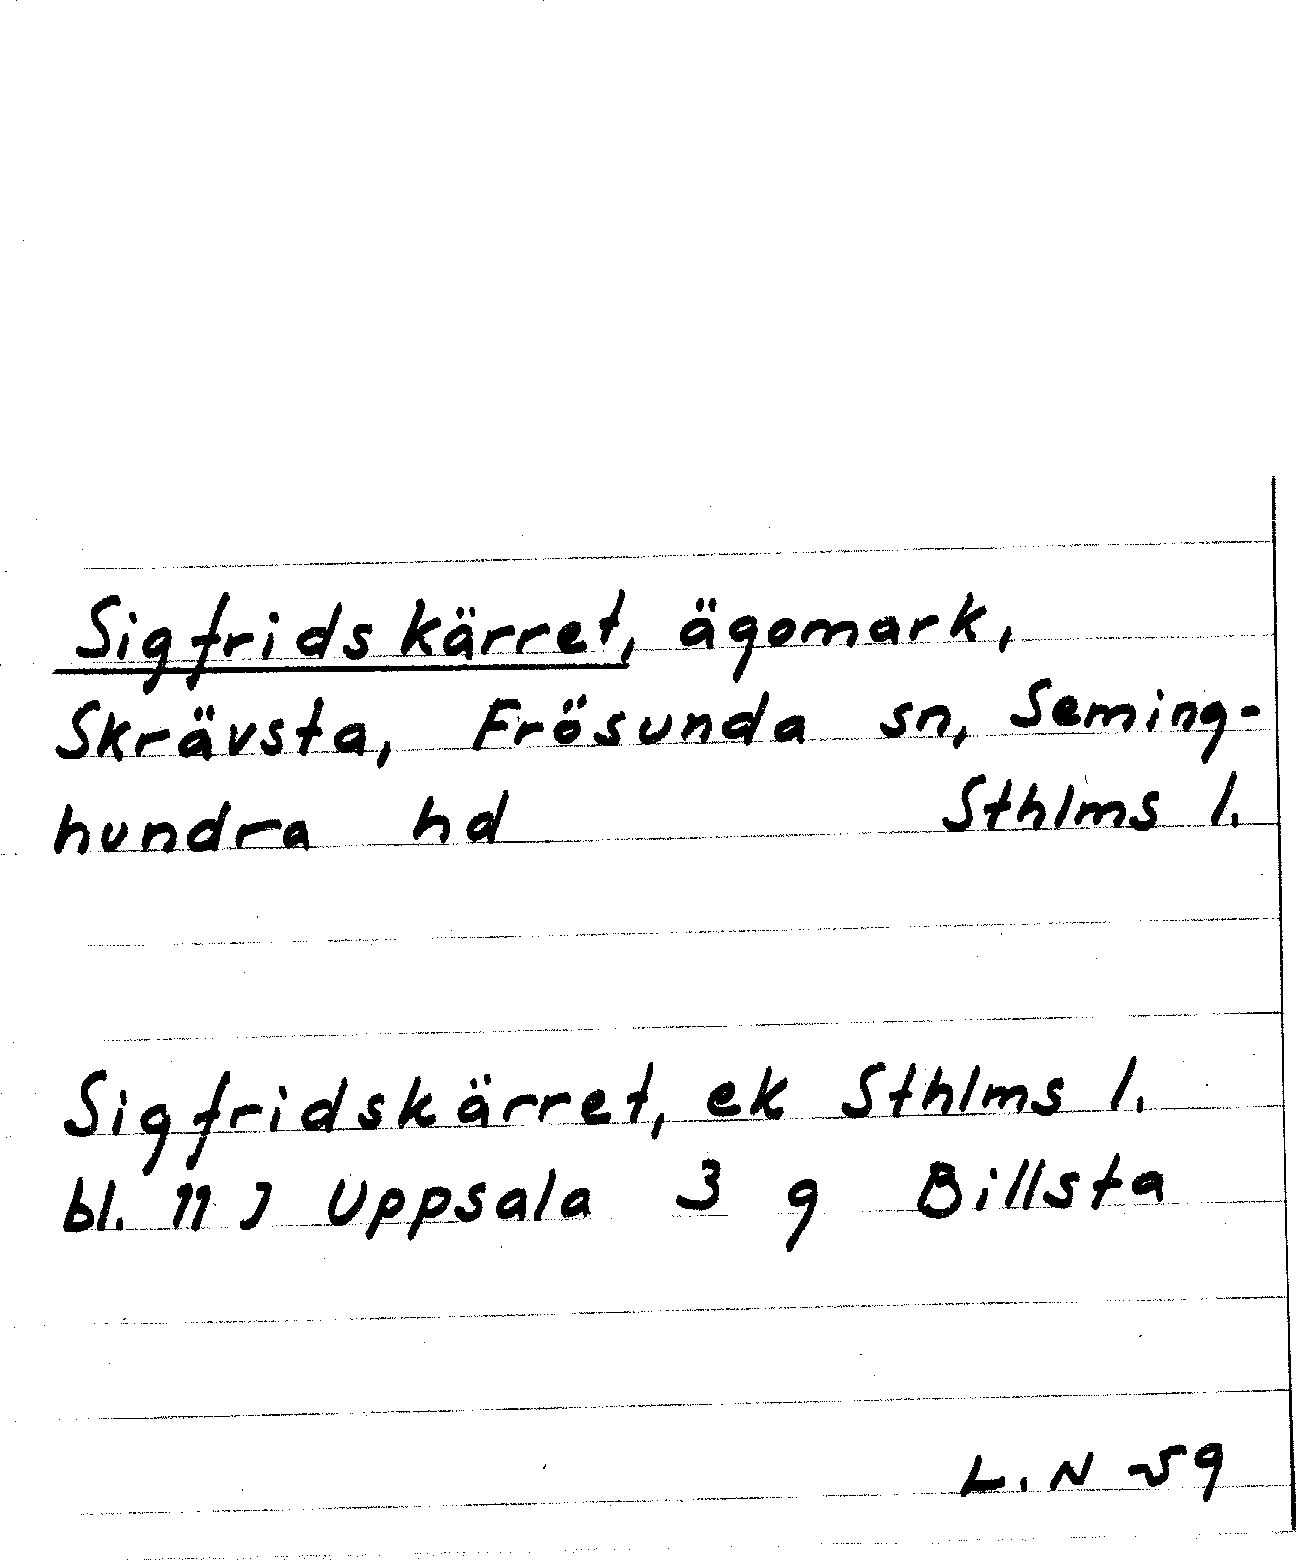 Sigfridskärret, ägomark,
Skrävsta, Frösunda sn, Seming-
hundra hd Sthlms l.
Sigfridskärret, ek Sthlms l.
bl. 11 J Uppsala 3 g Billsta
L.N -59